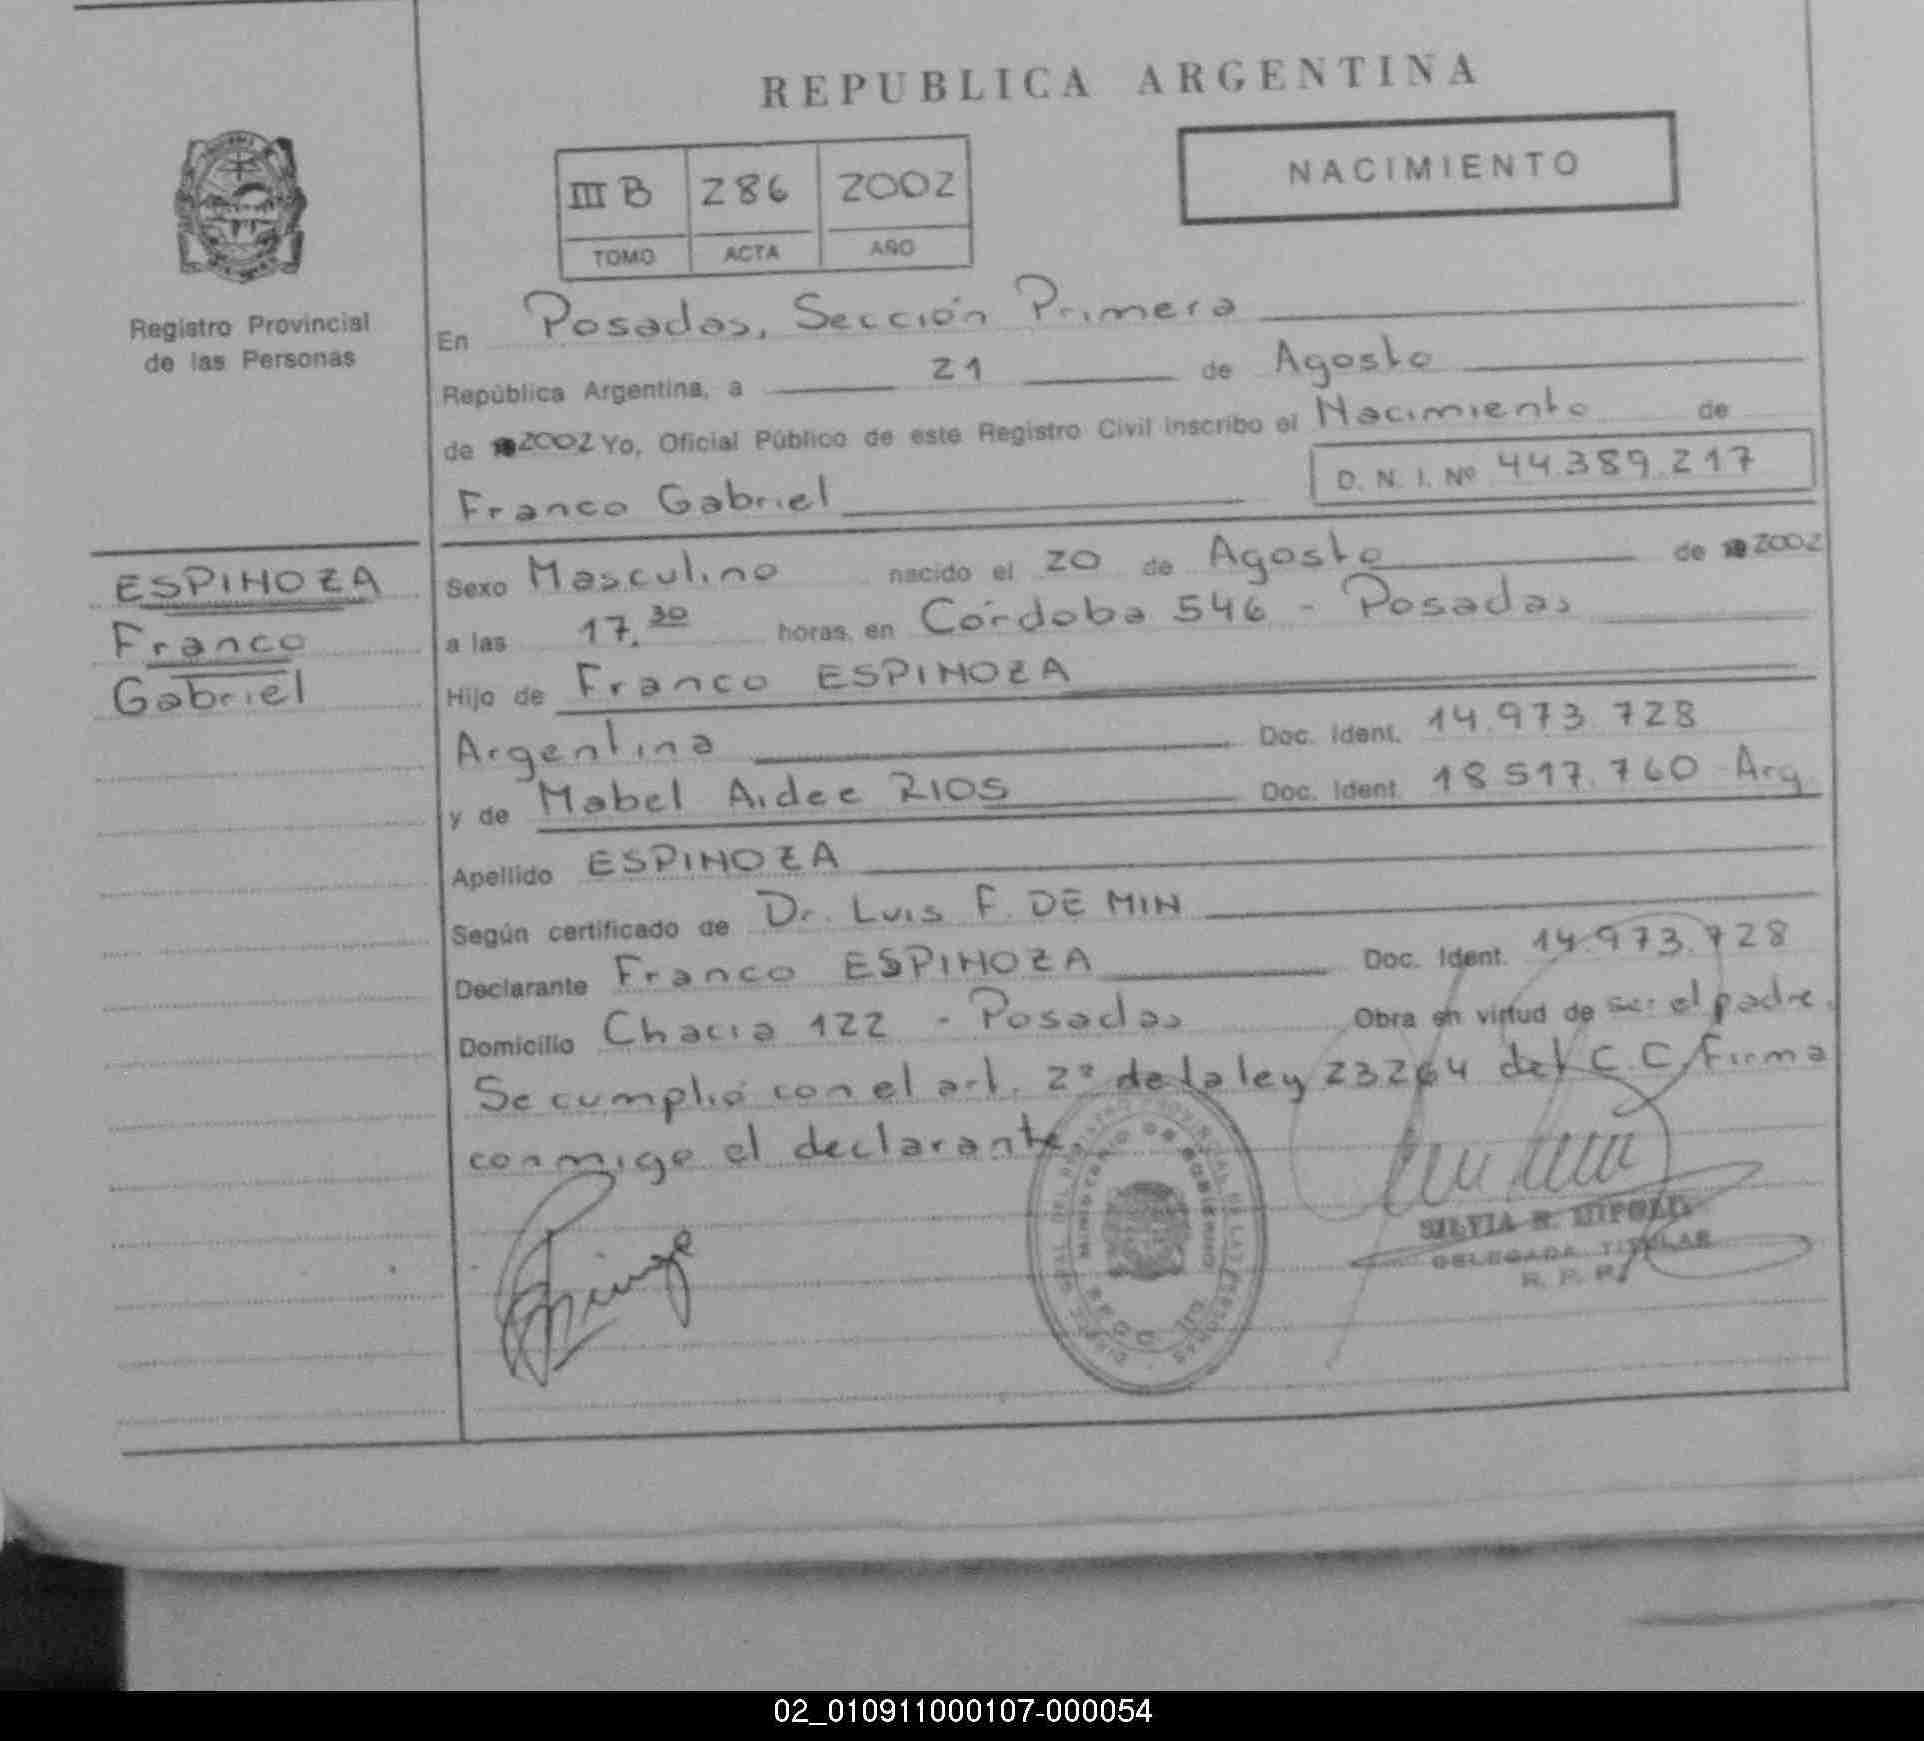 REPUBLICA ARGENTINA
NACIMIENTO
III B 286 2002
TOMO ACTA AÑO
Registro Provincial
de las Personas
En Posadas, Sección Primera
República Argentina, a 21 de Agosto
de 2002 Yo, Oficial Público de este Registro Civil inscribo el Nacimiento de
Franco Gabriel D. N. I. Nº 44.389.217
ESPINOZA
Franco
Gabriel
Sexo Masculino nacido el 20 de Agosto de 2002
a las 17.30 horas, en Córdoba 546 - Posadas
Hijo de Franco ESPINOZA
Argentina Doc. Ident. 14.973.728
y de Mabel Aidee RIOS Doc. Ident. 18.517.760 Arg
Apellido ESPINOZA
Según certificado de Dr. Luis F. DE MIN
Declarante Franco ESPINOZA Doc. Ident. 14.973.728
Domicilio Chacra 122 - Posadas Obra en virtud de ser el padre.
Se cumplió con el art. 2º de la ley 23264 del C.C. Firma
conmigo el declarante.
SILVIA
DELEGADA TITULAR
R. P. P.
02_010911000107-000054